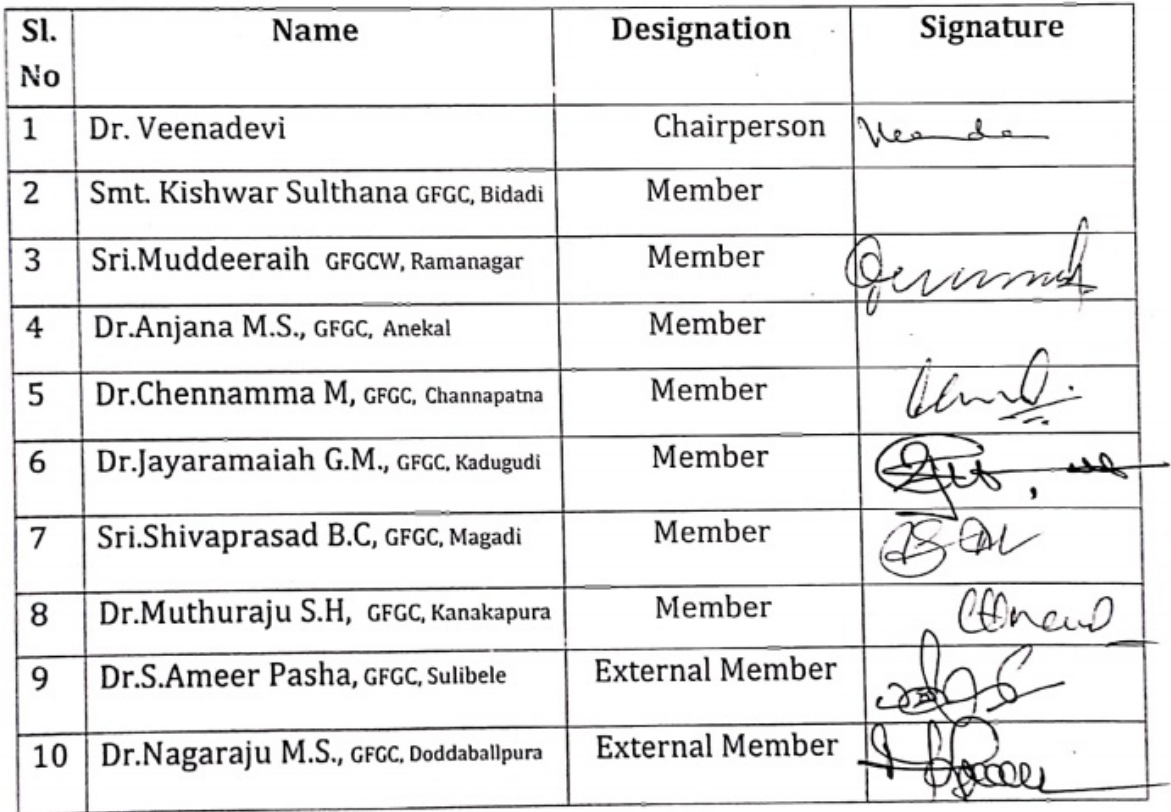 Sl. No Name Designation Signature
1 Dr. Veenadevi Chairperson
2 Smt. Kishwar Sulthana GFGC, Bidadi Member
3 Sri.Muddeeraih GFGCW, Ramanagar Member
4 Dr.Anjana M.S., GFGC, Anekal Member
5 Dr.Chennamma M, GFGC, Channapatna Member
6 Dr.Jayaramaiah G.M., GFGC, Kadugudi Member
7 Sri.Shivaprasad B.C, GFGC, Magadi Member
8 Dr.Muthuraju S.H, GFGC, Kanakapura Member
9 Dr.S.Ameer Pasha, GFGC, Sulibele External Member
10 Dr.Nagaraju M.S., GFGC, Doddaballpura External Member